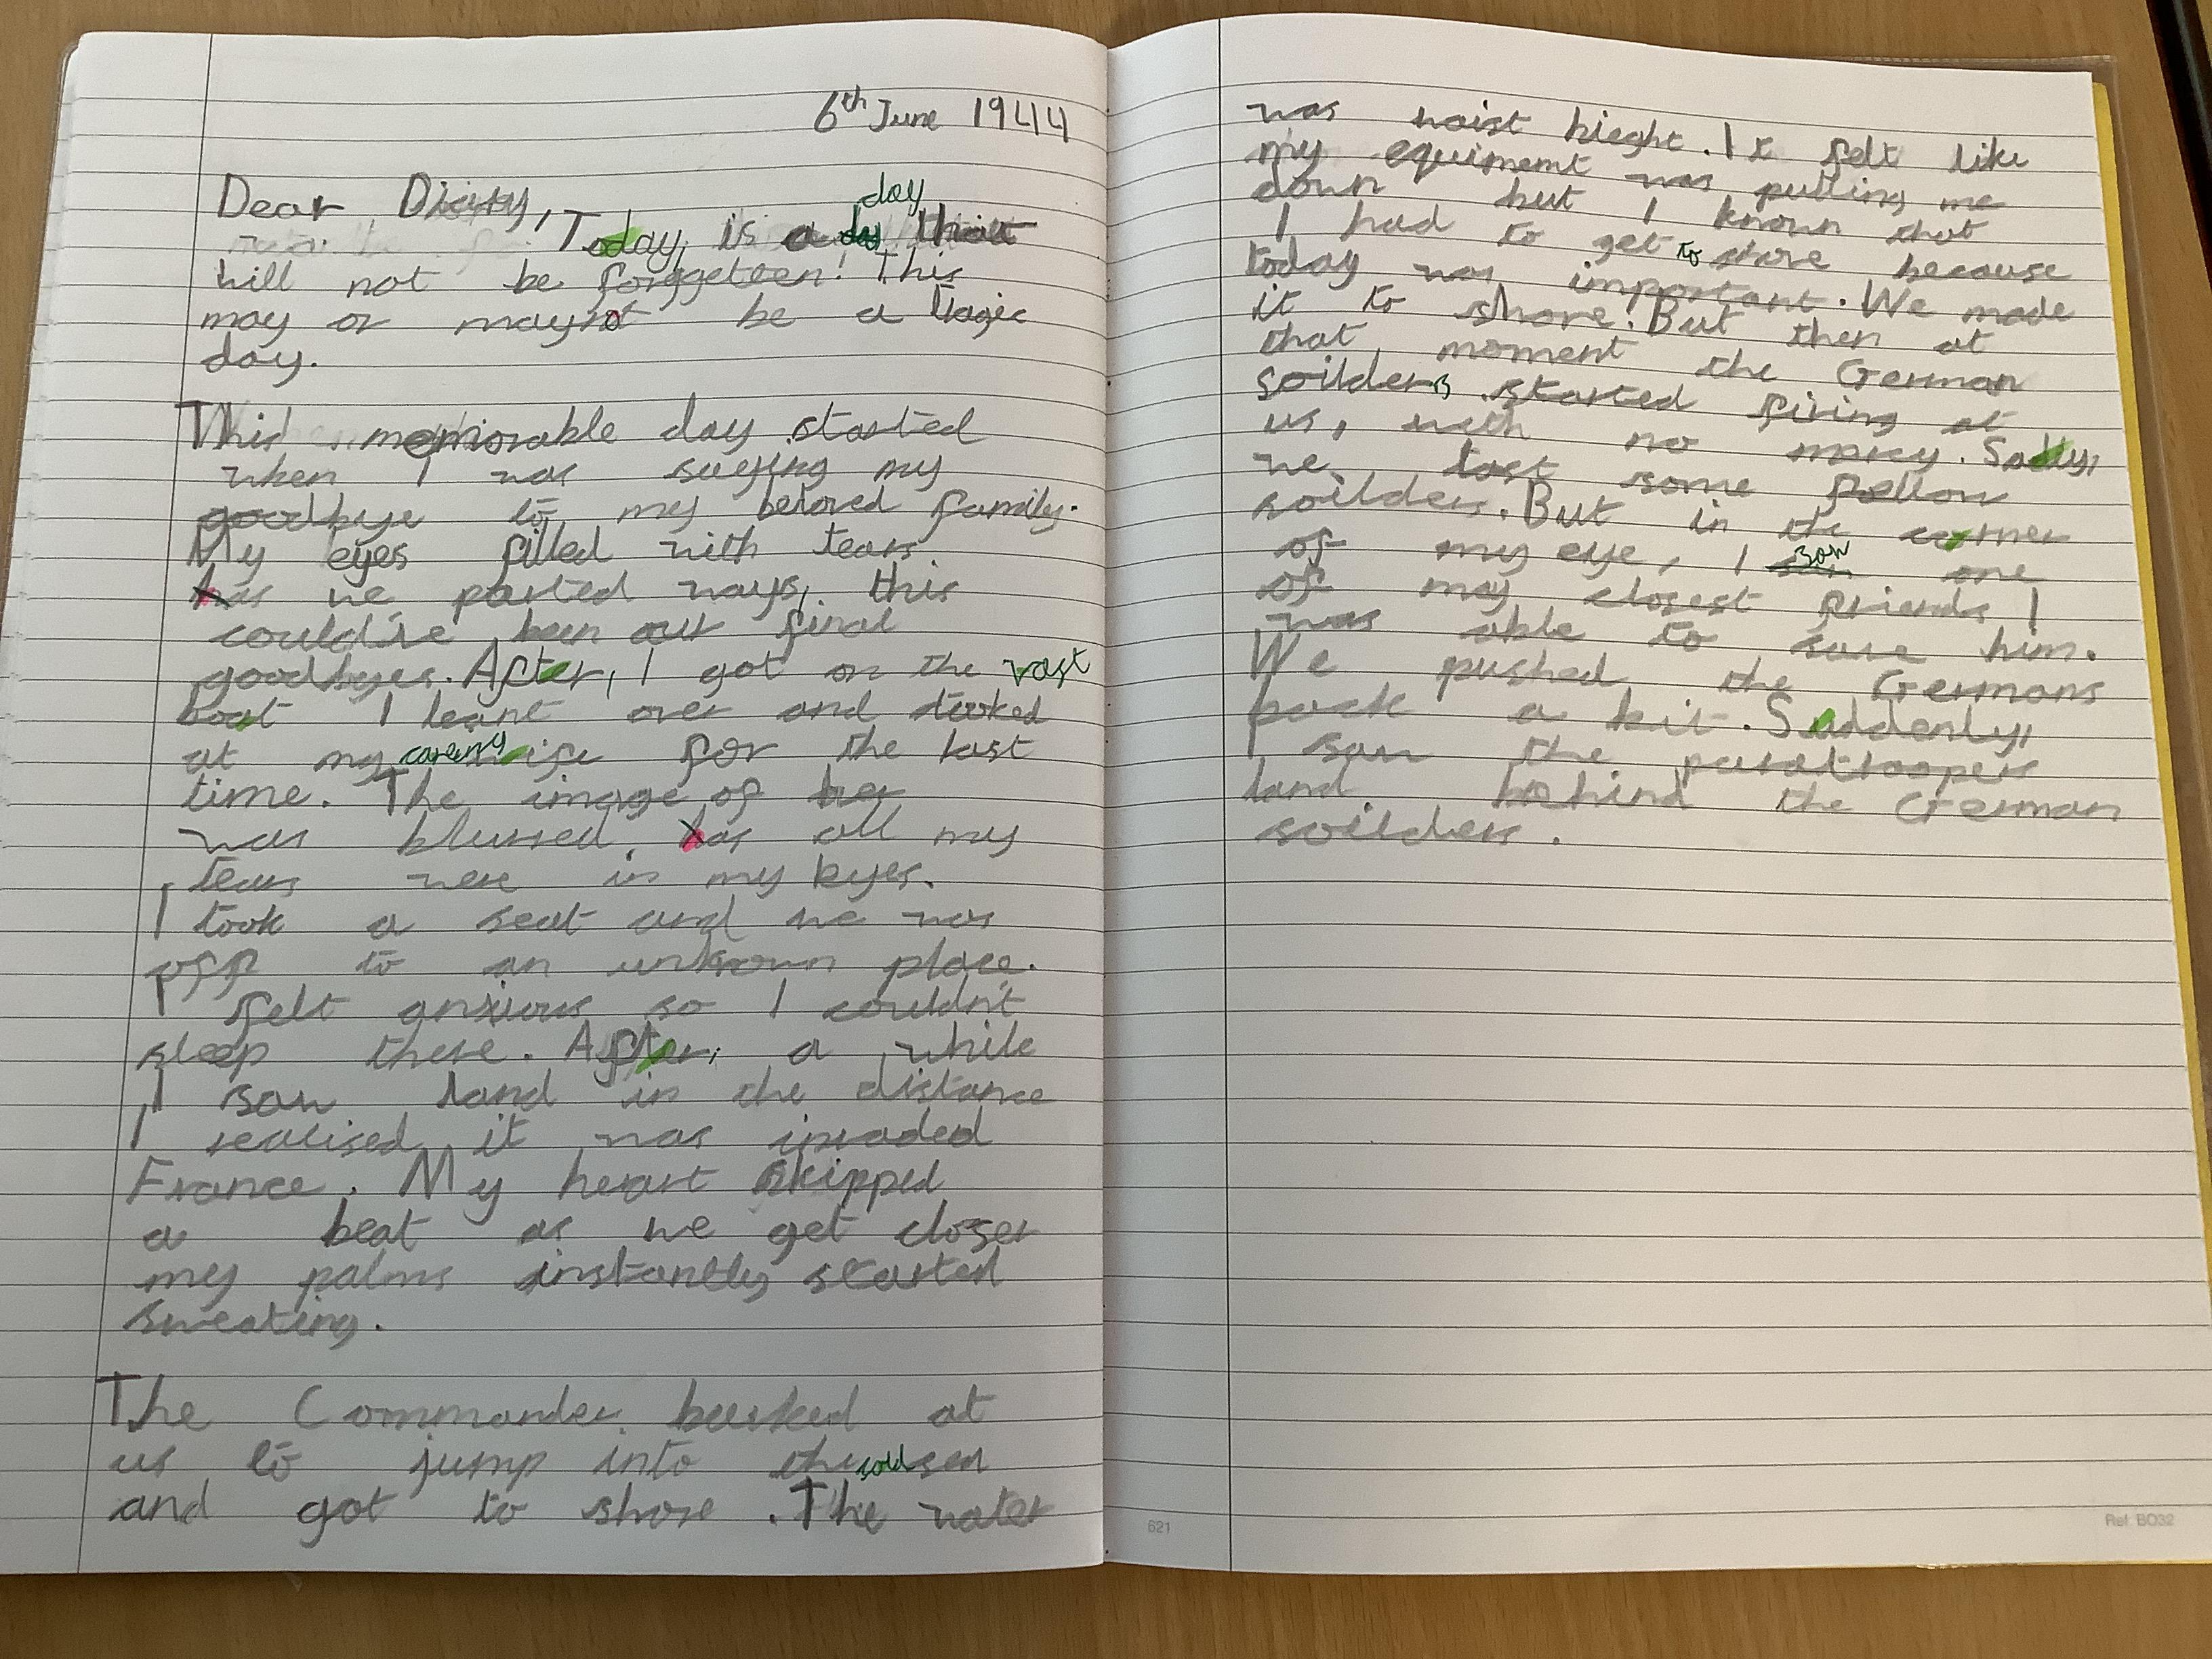 6th June 1944
Dear Diary, Today, is a day that
day
will not be forggeteen! This
may or maynot be a tragic
day.
This memorable day started
when I was saying my
goodbye to my beloved family.
My eyes filled with tears
has we parted ways, this
could've been our final
goodbyes. After, I got on the vast
boat I leant over and looked
at my careing wife for the last
time. The image of her
was blurred, has all my
tears were in my eyes.
I took a seat and we was
off to an unknown place.
I felt anxious so I couldn't
sleep there. After, a while
I saw land in the distance
I realised it was invaded
France. My heart skipped
a beat as we get closer
my palms instantly started
sweating.
The Commander barked at
us to jump into the cold sea
and got to shore. The water
was waist hieght. It felt like
my equimemt was pulling me
down but I known that
I had to get to shore because
today was important. We made
it to shore. But then at
that moment the German
soilders started firing at
us, with no mercy. Sadly,
we lost some fellow
soilders. But in the corner
of my eye, I saw one
of my closest friends I
was able to save him.
We pushed the Germans
back a bit. Suddenly,
I saw the paratroopers
land behind the German
soilders.
621
Ref: BO32